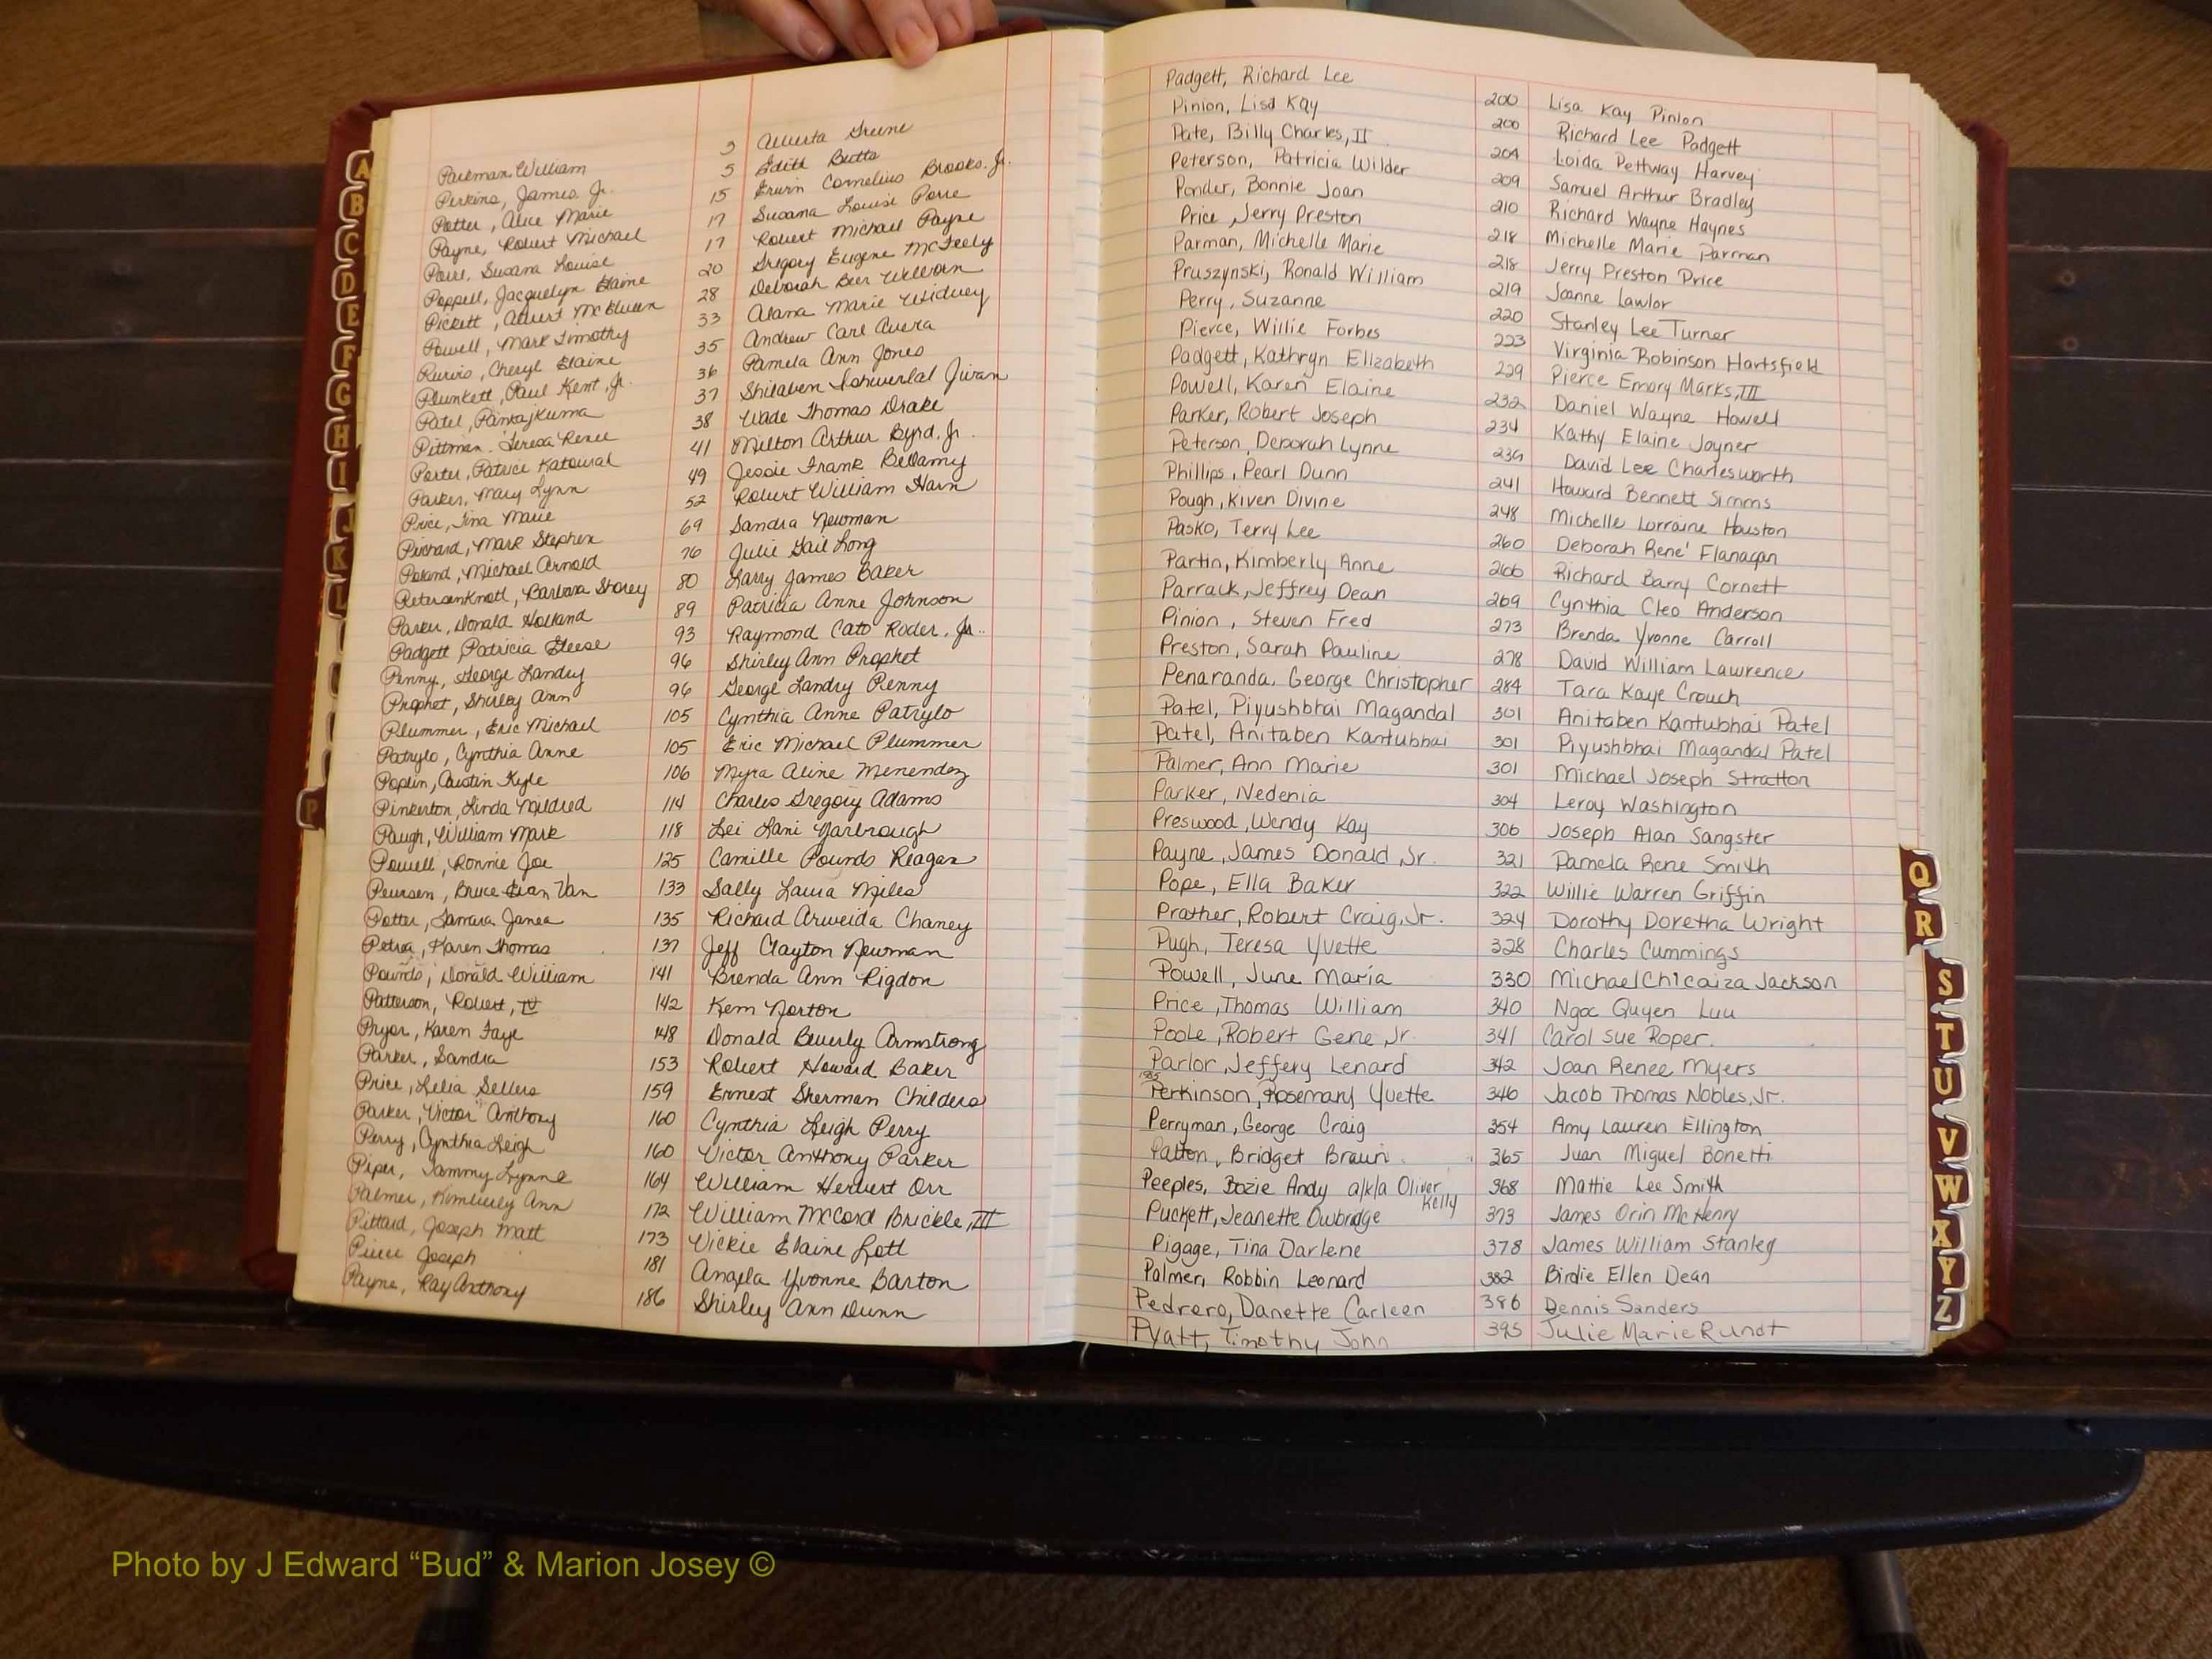 Parkman William 3 Alberta Greene
Perkins, James, Jr. 5 Edith Butts
Potter, Alice Marie 15 Erwin Cornelius Brooks, Jr.
Payne, Robert Michael 17 Susana Louise
Susana Louise 17 Robert Michael Payne
Poppell, Jacquelyn Elaine 20 Gregory Eugene McFeely
Pickett, Albert 28 Deborah
Powell, Mark Timothy 33 Alana Marie
Purvis, Cheryl Elaine 35 Andrew Carl Avera
Plunkett, Paul Kent, Jr. 36 Pamela Ann Jones
Patel, Pankajkuma 37 Shilaben Jivan
Pittman, Teresa Renee 38 Wade Thomas Drake
Porter, Patrice 41 Milton Arthur Byrd, Jr.
Parker, Mary Lynn 49 Jessie Frank Bellamy
Price, Tina Marie 52 Robert William Harn
Pirchard, Mark Stephen 69 Sandra Newman
Poland, Michael Arnold 76 Julie Gail Long
PetersenKnott, Barbara Storey 80 Larry James Baker
Parker, Donald Holland 89 Patricia Anne Johnson
Padgett, Patricia 93 Raymond Cato Roder, Jr.
Penny, George Landry 96 Shirley Ann Prophet
Prophet, Shirley Ann 96 George Landry Penny
Plummer, Eric Michael 105 Cynthia Anne Patrylo
Patrylo, Cynthia Anne 105 Eric Michael Plummer
Poplin, Austin Kyle 106 Myra Aline Menendez
Pinkerton, Linda Mildred 114 Charles Gregory Adams
Paugh, William Mark 118 Lei Lani Yarbrough
Powell, Ronnie Joe 125 Camille Pounds Reagan
Peursen, Bruce Evan Van 133 Sally Laura Miles
Potter, Tamara Janea 135 Richard Arweida Chaney
Petrea, Karen Thomas 137 Jeff Clayton Newman
Pounds, Donald William 141 Brenda Ann Rigdon
Patterson, Robert, IV 142 Kem Norton
Pryor, Karen Faye 148 Donald Beverly Armstrong
Parker, Sandra 153 Robert Howard Baker
Price, Lelia Sellers 159 Ernest Sherman Childers
Parker, Victor Anthony 160 Cynthia Leigh Perry
Perry, Cynthia Leigh 160 Victor Anthony Parker
Piper, Tammy Lynne 164 William Herbert Orr
Palmer, Kimberly Ann 172 William McCord Brickle, III
Pittard, Joseph Matt 173 Vickie Elaine Lott
Pierce Joseph 181 Angela Yvonne Barton
Payne, Ray Anthony 186 Shirley Ann Dunn
Padgett, Richard Lee 200 Lisa Kay Pinion
Pinion, Lisa Kay 200 Richard Lee Padgett
Pate, Billy Charles, II 204 Loida Pettway Harvey
Peterson, Patricia Wilder 209 Samuel Arthur Bradley
Ponder, Bonnie Joan 210 Richard Wayne Haynes
Price, Jerry Preston 218 Michelle Marie Parman
Parman, Michelle Marie 218 Jerry Preston Price
Pruszynski, Ronald William 219 Joanne Lawlor
Perry, Suzanne 220 Stanley Lee Turner
Pierce, Willie Forbes 223 Virginia Robinson Hartsfield
Padgett, Kathryn Elizabeth 229 Pierce Emory Marks, III
Powell, Karen Elaine 232 Daniel Wayne Howell
Parker, Robert Joseph 234 Kathy Elaine Joyner
Peterson, Deborah Lynne 239 David Lee Charlesworth
Phillips, Pearl Dunn 241 Howard Bennett Simms
Pough, Kiven Divine 248 Michelle Lorraine Houston
Pasko, Terry Lee 260 Deborah Rene' Flanagan
Partin, Kimberly Anne 266 Richard Barry Cornett
Parrack, Jeffrey Dean 269 Cynthia Cleo Anderson
Pinion, Steven Fred 273 Brenda Yvonne Carroll
Preston, Sarah Pauline 278 David William Lawrence
Penaranda, George Christopher 284 Tara Kaye Crouch
Patel, Piyushbhai Magandal 301 Anitaben Kantubhai Patel
Patel, Anitaben Kantubhai 301 Piyushbhai Magandal Patel
Palmer, Ann Marie 301 Michael Joseph Stratton
Parker, Nedenia 304 Leroy Washington
Preswood, Wendy Kay 306 Joseph Alan Sangster
Payne, James Donald, Sr. 321 Pamela Rene Smith
Pope, Ella Baker 322 Willie Warren Griffin
Prather, Robert Craig, Jr. 324 Dorothy Doretha Wright
Pugh, Teresa Yvette 328 Charles Cummings
Powell, June Maria 330 Michael Chicaiza Jackson
Price, Thomas William 340 Ngoc Quyen Luu
Poole, Robert Gene, Jr. 341 Carol Sue Roper.
Parlor, Jeffery Lenard 342 Joan Renee Myers
1985
Perkinson, Rosemary Yvette 346 Jacob Thomas Nobles, Jr.
Perryman, George Craig 354 Amy Lauren Ellington
Patton, Bridget Braun 365 Juan Miguel Bonetti
Peeples, Bozie Andy a/k/a Oliver Kelly 368 Mattie Lee Smith
Puckett, Jeanette Owbridge 373 James Orin McHenry
Pigage, Tina Darlene 378 James William Stanley
Palmer, Robbin Leonard 382 Birdie Ellen Dean
Pedrero, Danette Carleen 386 Dennis Sanders
Pyatt, Timothy John 395 Julie Marie Rundt
A
B
C
D
E
F
G
H
I
J
K
L
P
Q
R
S
T
U
V
W
X
Y
Z
Photo by J Edward “Bud” & Marion Josey ©